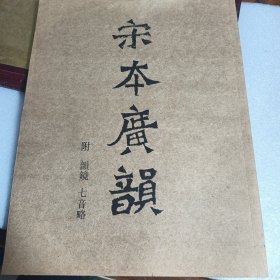 宋本廣韻
附 韻鏡 七音略